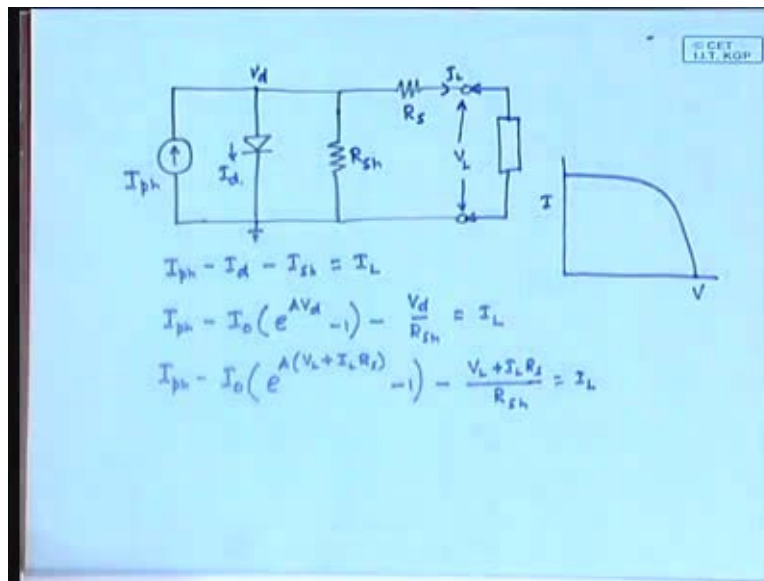 © CET
I.I.T. KGP
V_d
I_L
R_s
I_ph
I_d
R_sh
V_L
I
V
I_ph - I_d - I_sh = I_L
I_ph - I_0 (e^{AV_d} - 1) - V_d/R_sh = I_L
I_ph - I_0 (e^{A(V_L + I_L R_s)} - 1) - (V_L + I_L R_s)/R_sh = I_L